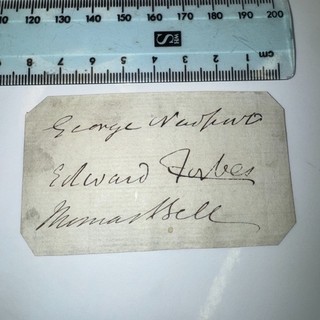 80 90 100 110 120 130 140 150 160 170 180 190 200
SIS
9 8 7 6 5 4 3 2 1 cm
George Newport
Edward Forbes
Thomas Bell